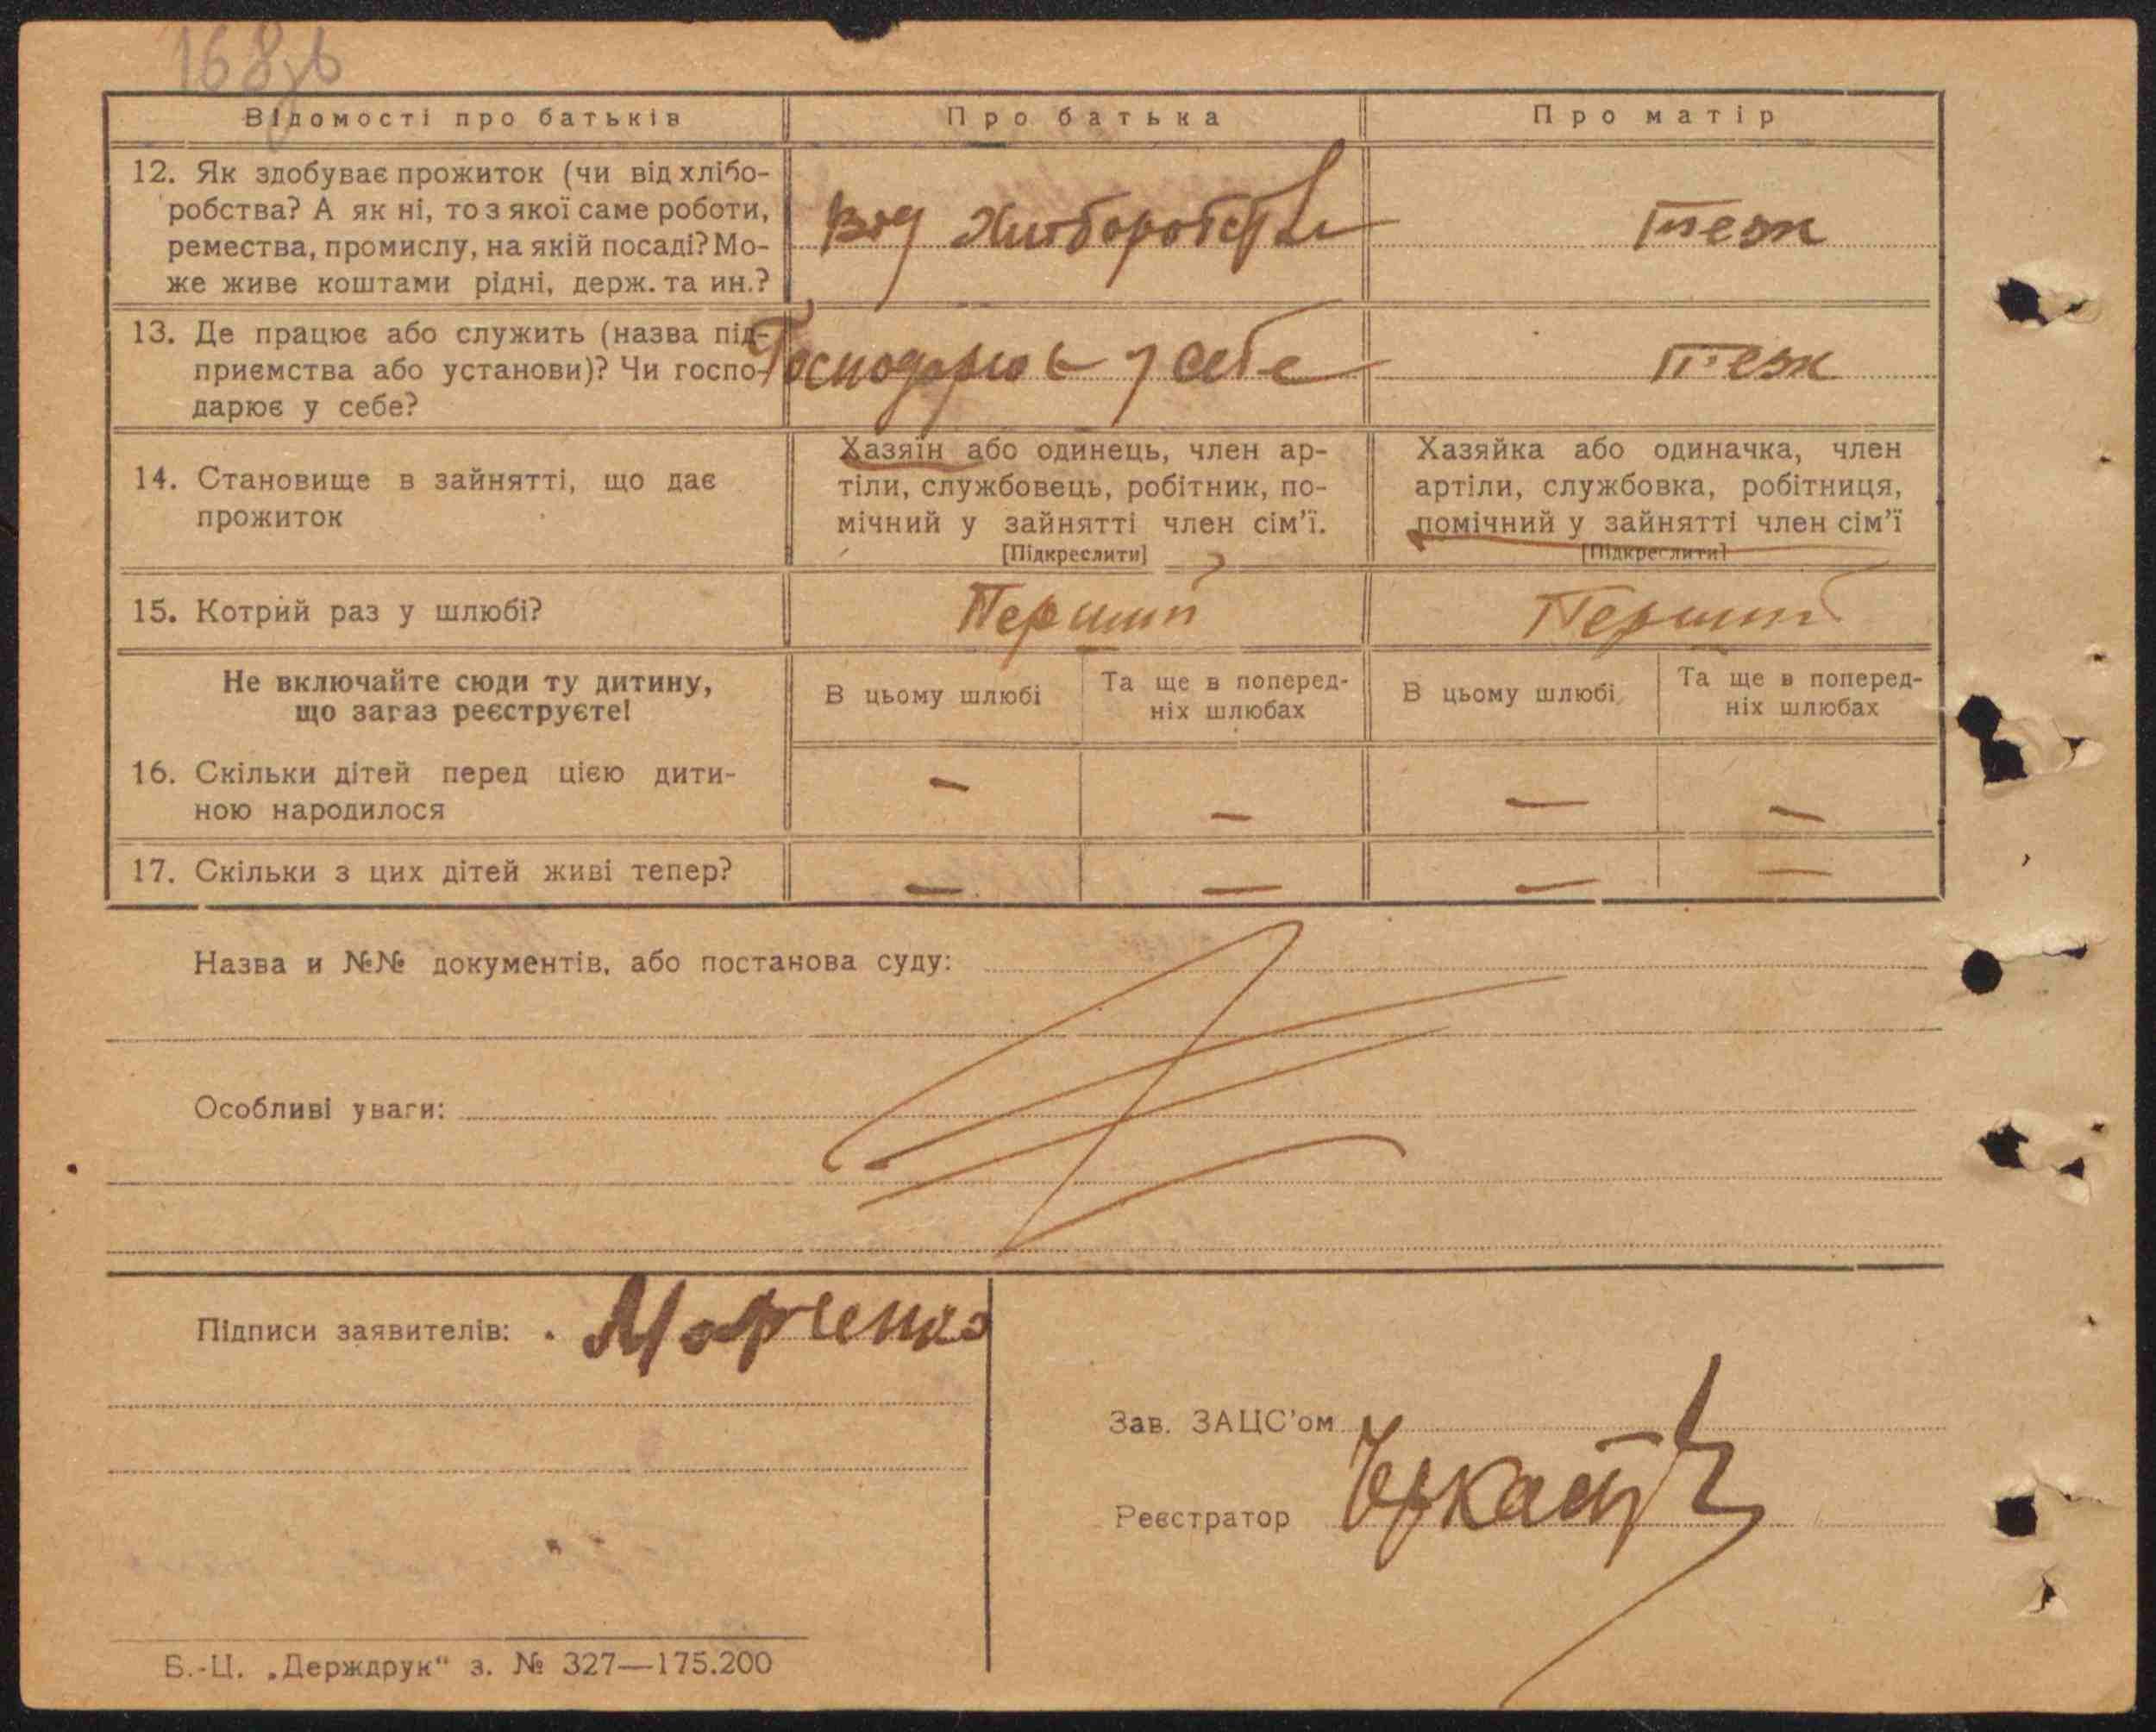 168зв
Відомості про батьків
Про батька
Про матір
12. Як здобуває прожиток (чи від хлібо-
робства? А як ні, то з якої саме роботи,
ремества, промислу, на якій посаді? Мо-
же живе коштами рідні, держ. та ин.?
Від хліборобства
теж
13. Де працює або служить (назва під-
приємства або установи)? Чи госпо-
дарює у себе?
Господарює у себе
теж
14. Становище в зайнятті, що дає
прожиток
Хазяїн або одинець, член ар-
тіли, службовець, робітник, по-
мічний у зайнятті член сім'ї.
[Підкреслити]
Хазяйка або одиначка, член
артіли, службовка, робітниця,
помічний у зайнятті член сім'ї
[Підкреслити]
15. Котрий раз у шлюбі?
Перший
Перший
Не включайте сюди ту дитину,
що загаз реєструєте!
В цьому шлюбі
Та ще в поперед-
ніх шлюбах
В цьому шлюбі
Та ще в поперед-
ніх шлюбах
16. Скільки дітей перед цією дити-
ною народилося
— — — —
17. Скільки з цих дітей живі тепер?
— — — —
Назва и №№ документів, або постанова суду:
Особливі уваги:
Підписи заявителів:
Зав. ЗАЦС'ом
Реєстратор
Б.-Ц. „Держдрук" з. № 327—175.200